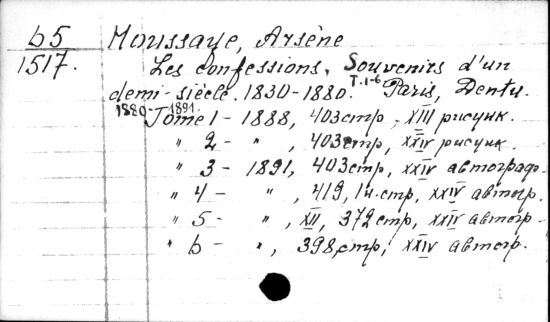 b5
1517.
Moussaye, Arsène
Les confessions. Souvenirs d'un
demi-siècle. 1830-1880. T.1-6 Paris, Dentu.
1880-1891.
Tome 1 - 1888, 403 стр, XIII рисунк.
" 2 - " , 403 стр, XXIV рисунк.
" 3 - 1891, 403 стр, XXIV автограф.
" 4 - " , 419, 1 н. стр, XXIV автогр.
" 5 - " , XII, 372 стр, XXIV автогр.
" 6 - " , 398 стр, XXIV автогр.